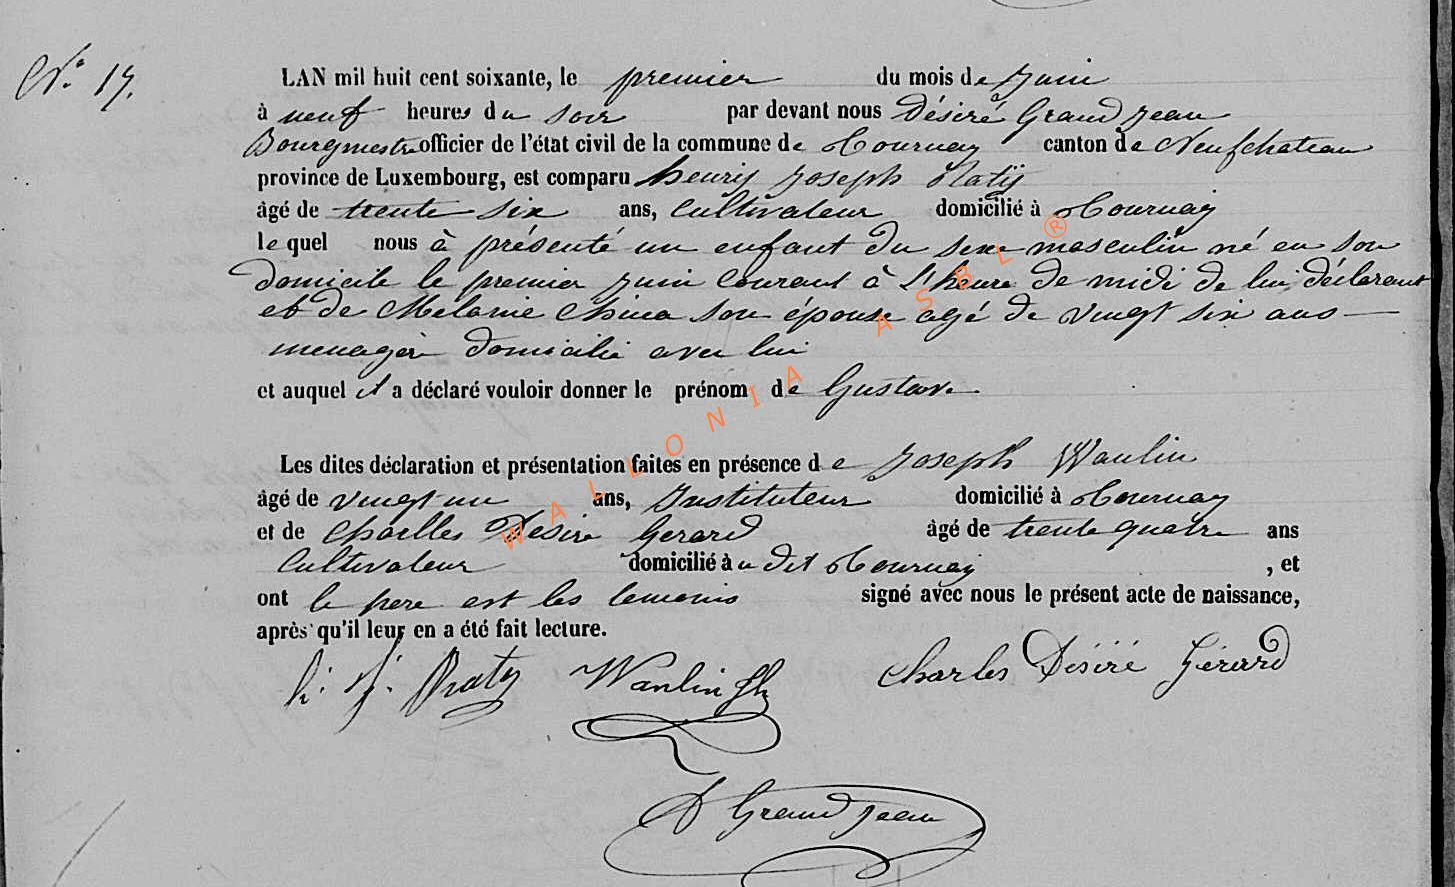 N° 17.
LAN mil huit cent soixante, le premier du mois de Juin
à neuf heures du soir par devant nous Désiré Grandjean
Bourgmestre officier de l'état civil de la commune de Tournay canton de Neufchateau
province de Luxembourg, est comparu henry Joseph
âgé de trente six ans, Cultivateur domicilié à Tournay
le quel nous à présenté un enfant du sexe masculin né en son
domicile le premier juin courant à l'heure de midi de lui déclarant
et de Melanie China son épouse agé de vingt six ans
menagère domicilié avec lui
et auquel il a déclaré vouloir donner le prénom de Gustave
Les dites déclaration et présentation faites en présence de Joseph Wanlin
âgé de vingt un ans, Instituteur domicilié à Tournay
et de Charlles Desire Gerard âgé de trente quatre ans
Cultivateur domicilié à u dit Tournay , et
ont le pere est les temoins signé avec nous le présent acte de naissance,
après qu'il leur en a été fait lecture.
h. j. Wanlin Jh Charles Désiré Gérard
D Grandjean
WALLONIA ASBL ®